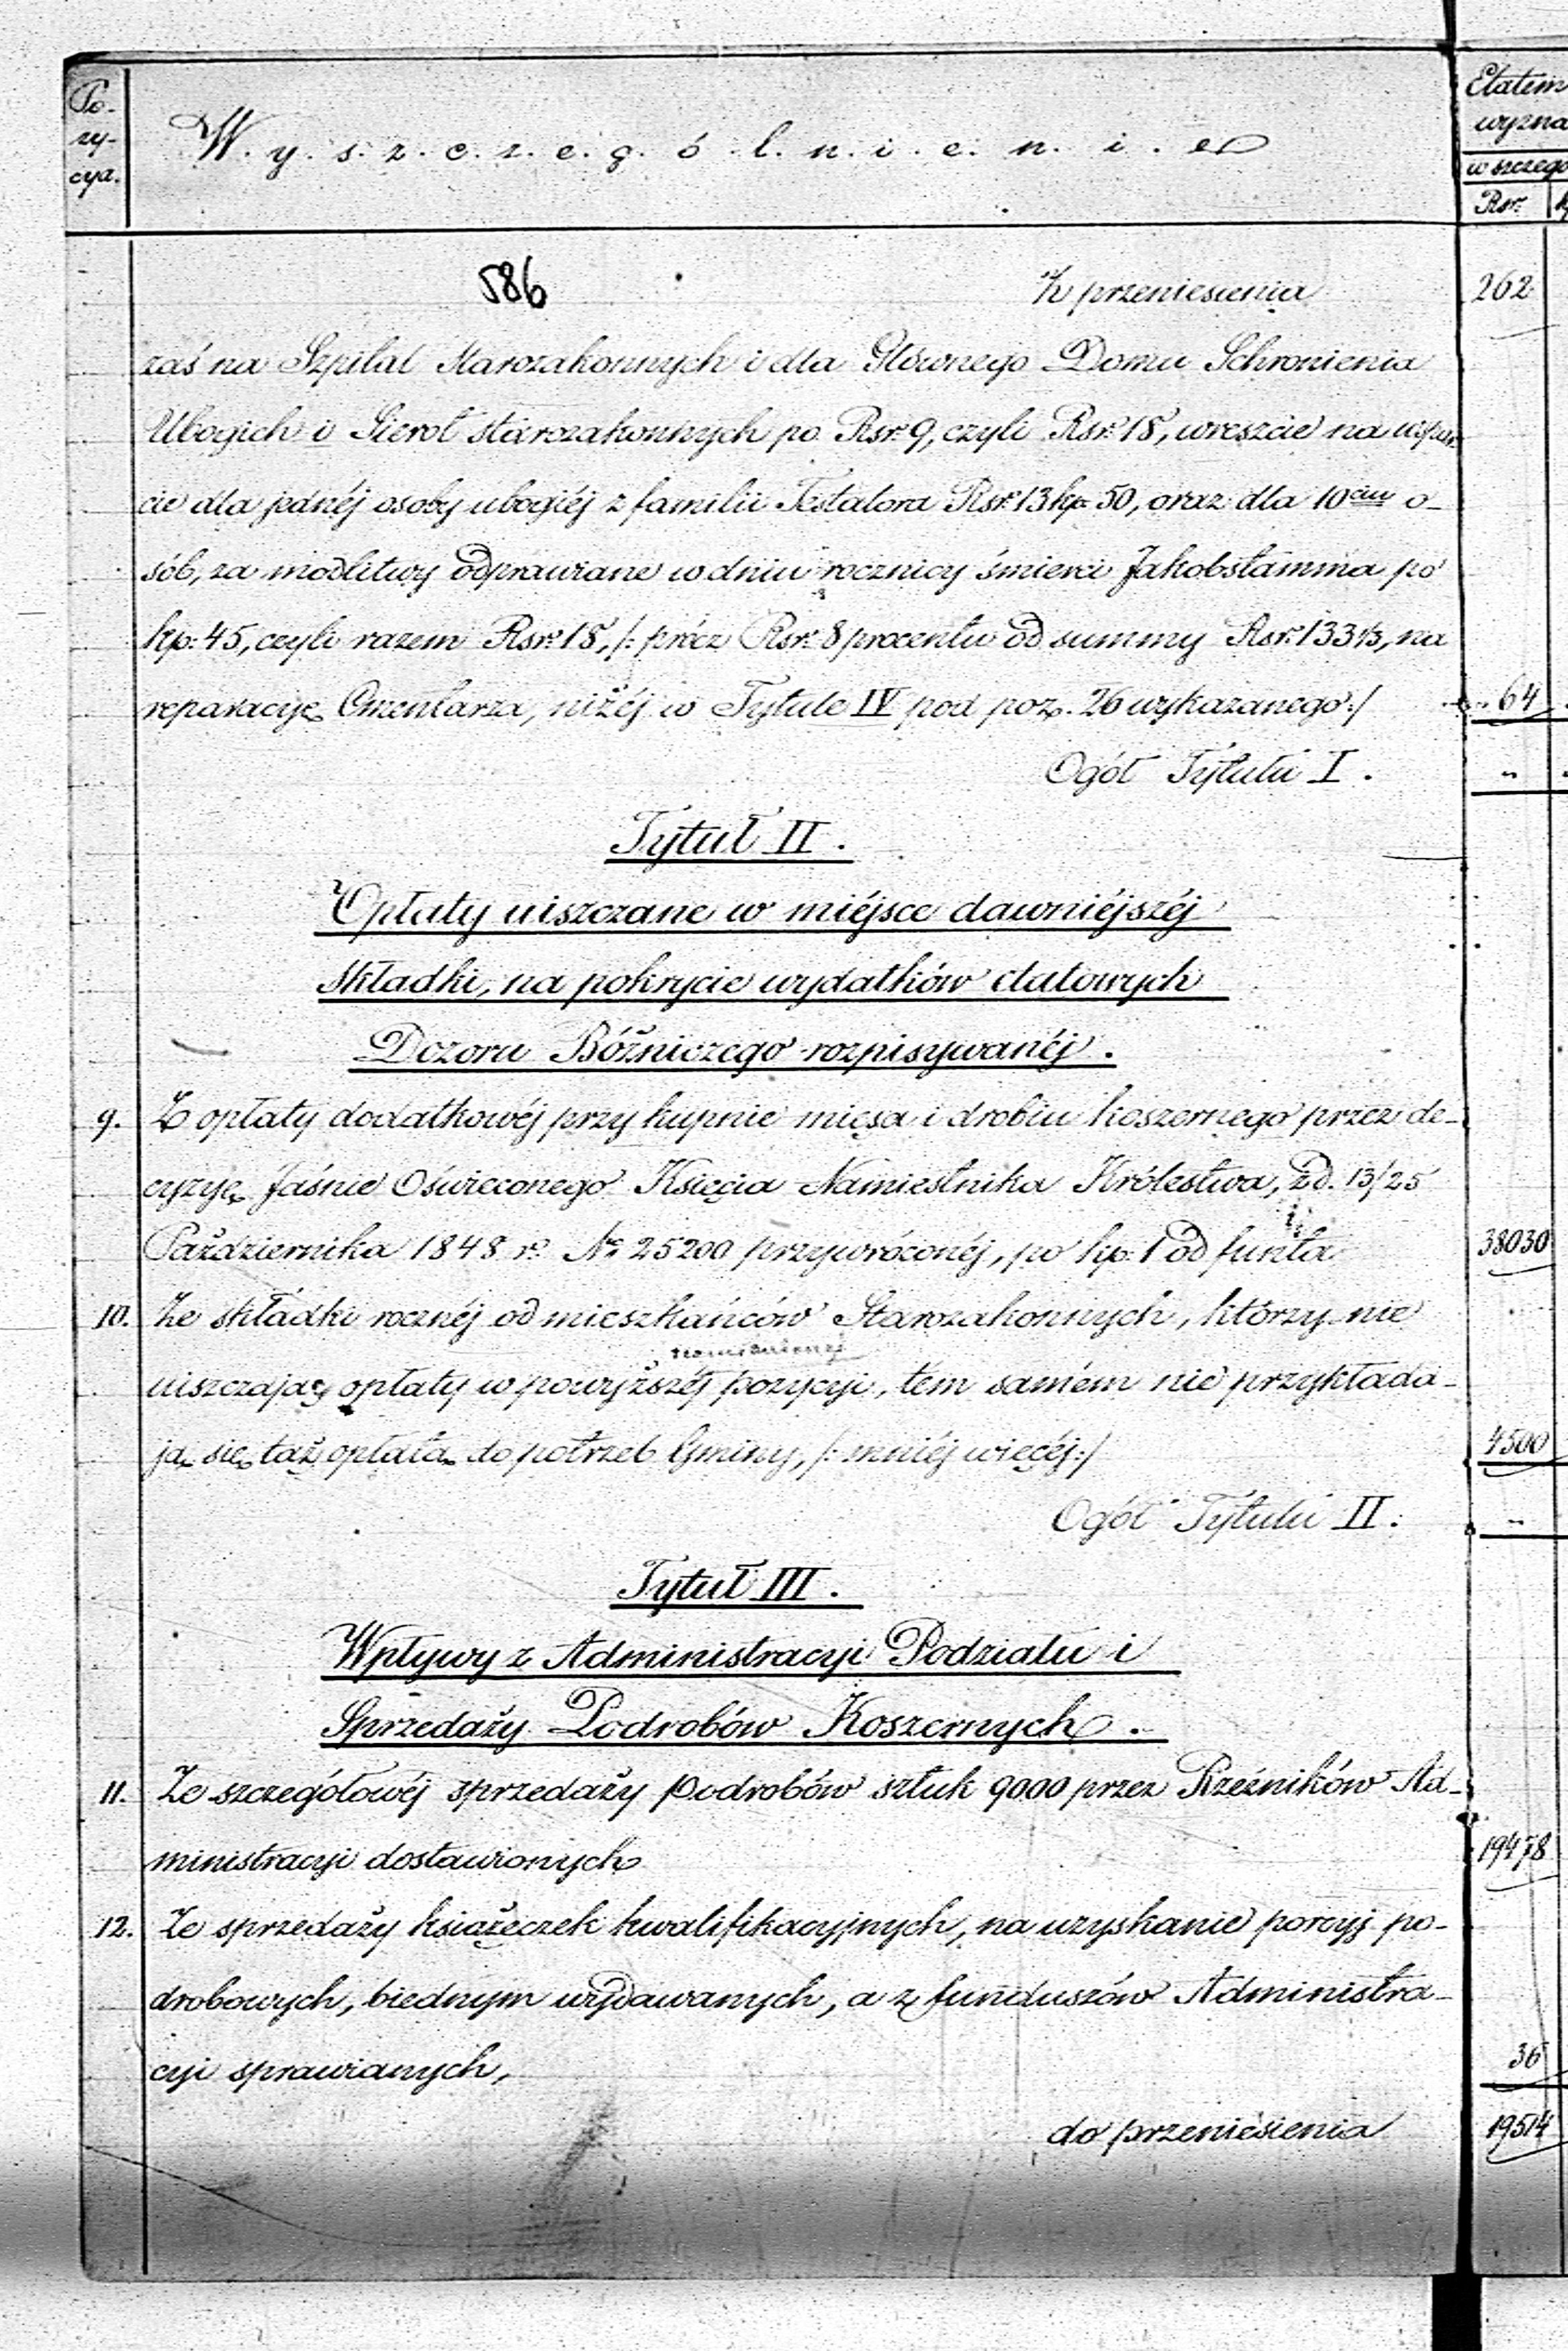 Po-
zy-
cya.
W.y.s.z.c.z.e.g.ó.l.n.i.e.n.i.e
Etatem
wyzna
w szczegó
Rsr.
586
Z przeniesienia 262
zaś na Szpital Starozakonnych i dla Głównego Domu Schronienia
Ubogich i Sierot starozakonnych po Rsr. 9, czyli Rsr. 18, wreszcie na wspar-
cie dla jednéj osoby ubogiéj z familii Testatora Rsr. 13 kp. 50, oraz dla 10ciu o-
sób, za modlitwy odprawiane w dniu rocznicy śmierci Jakobstamma po
kp: 45, czyli razem Rsr. 18, /: prócz Rsr. 8 procentu od summy Rsr. 133 1/3, na
reparacyję Cmentarza, niżéj w Tytule IV pod poz. 26 wykazanego :/ 64
Ogół Tytułu I. "
Tytuł II.
Opłaty uiszczane w miéjsce dawniéjszéj
składki, na pokrycie wydatków etatowych
Dozoru Bóżniczego rozpisywanéj.
9. Z opłaty dodatkowéj przy kupnie mięsa i drobiu koszernego przez de-
cyzyę Jaśnie Oświeconego Księcia Namiestnika Królestwa, z d. 13/25
Października 1848 r. No 25200 przywróconéj, po kp: 1 od funta 38030
10. Ze składki rocznéj od mieszkańców Starozakonnych, którzy nie
uiszczając opłaty w powyższéj pozycyi, tém samém nie przykłada-
ją się tąż opłatą do potrzeb Gminy, /: mniéj więcéj :/ 4500
Ogół Tytułu II. "
Tytuł III.
Wpływy z Administracyi Podziału i
Sprzedaży Podrobów Koszernych.
11. Ze szczegółowéj sprzedaży Podrobów sztuk 9000 przez Rzeźników Ad-
ministracyi dostawionych 19478
12. Ze sprzedaży książeczek kwalifikacyjnych, na uzyskanie porcyj po-
drobowych, biednym wydawanych, a z funduszów Administra-
cyi sprawianych, 36
do przeniesienia 19514